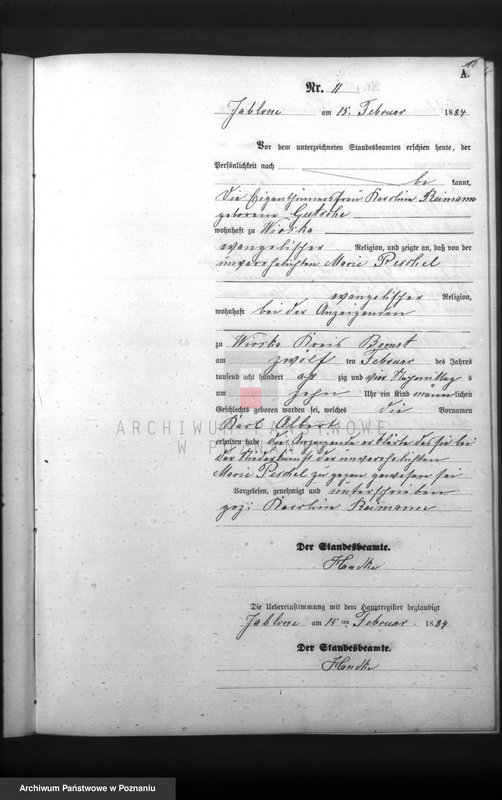 A.
Nr. 11
Jablone am 15. Februar 1884
Vor dem unterzeichneten Standesbeamten erschien heute, der
Persönlichkeit nach
be kannt,
die Eigenthümersfrau Karolin Reimann
geborene Gutsche
wohnhaft zu Wioska
evangelischer Religion, und zeigte an, daß von der
unverehelichten Marie Peschel
evangelischer Religion,
wohnhaft bei der Anzeigenden
zu Wioska Kreis Bomst
am zwölf ten Februar des Jahres
tausend acht hundert acht zig und vier Nachmittag s
um zehn Uhr ein Kind männ lichen
Geschlechts geboren worden sei, welches die Vornamen
Karl Albert
erhalten habe die Anzeigende erklärte das sie bei
der Niederkunft der unverehelichten
Marie Peschel zu gegen gewesen sei
Vorgelesen, genehmigt und unterschrieben
gez: Karolin Reimann
Der Standesbeamte.
Handke
Die Uebereinstimmung mit dem Hauptregister beglaubigt
Jablone am 15 ten Februar. 1884
Der Standesbeamte.
Handke
ARCHIWUM PAŃSTWOWE
W POZNANIU
Archiwum Państwowe w Poznaniu